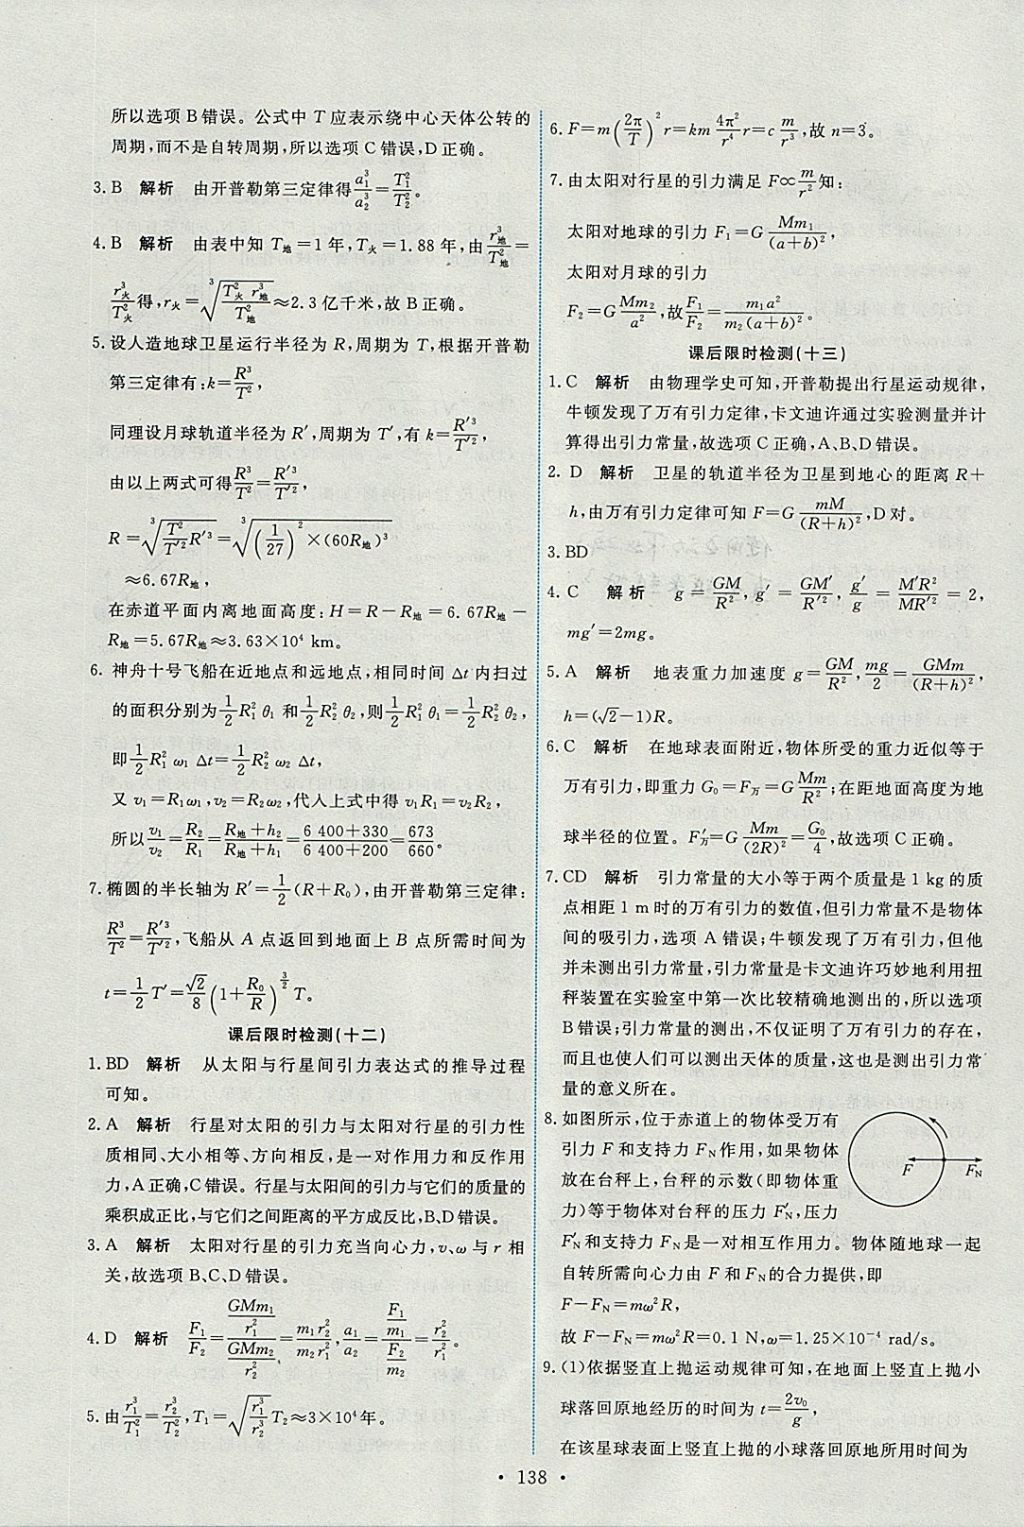 所以选项B错误。公式中T应表示绕中心天体公转的
周期,而不是自转周期,所以选项C错误,D正确。
3. B 解析 由开普勒第三定律得a₁³/a₂³=T₁²/T₂²。
4. B 解析 由表中知T地=1年,T火=1.88年,由r地³/T地²=
r火³/T火²得,r火=∛(T火² r地³/T地²)≈2.3亿千米,故B正确。
5. 设人造地球卫星运行半径为R,周期为T,根据开普勒
第三定律有:k=R³/T²,
同理设月球轨道半径为R′,周期为T′,有k=R′³/T′²,
由以上两式可得R³/T²=R′³/T′²,
R=∛(T²/T′² R′³)=∛((1/27)²×(60R地)³)
≈6.67R地,
在赤道平面内离地面高度:H=R-R地=6.67R地-
R地=5.67R地≈3.63×10⁴ km。
6. 神舟十号飞船在近地点和远地点,相同时间Δt内扫过
的面积分别为1/2R₁²θ₁和1/2R₂²θ₂,则1/2R₁²θ₁=1/2R₂²θ₂,
即1/2R₁²ω₁Δt=1/2R₂²ω₂Δt,
又v₁=R₁ω₁,v₂=R₂ω₂,代人上式中得v₁R₁=v₂R₂,
所以v₁/v₂=R₂/R₁=(R地+h₂)/(R地+h₁)=(6 400+330)/(6 400+200)=673/660。
7. 椭圆的半长轴为R′=1/2(R+R₀),由开普勒第三定律:
R³/T²=R′³/T′²,飞船从A点返回到地面上B点所需时间为
t=1/2T′=√2/8(1+R₀/R)^(3/2)T。
课后限时检测(十二)
1. BD 解析 从太阳与行星间引力表达式的推导过程
可知。
2. A 解析 行星对太阳的引力与太阳对行星的引力性
质相同、大小相等、方向相反,是一对作用力和反作用
力,A正确,C错误。行星与太阳间的引力与它们的质量的
乘积成正比,与它们之间距离的平方成反比,B、D错误。
3. A 解析 太阳对行星的引力充当向心力,v、ω与r相
关,故选项B、C、D错误。
4. D 解析 F₁/F₂=(GMm₁/r₁²)/(GMm₂/r₂²)=m₁r₂²/m₂r₁²,a₁/a₂=(F₁/m₁)/(F₂/m₂)=r₂²/r₁²。
5. 由r₁³/T₁²=r₂³/T₂²,T₁=√(r₁³/r₂³)T₂≈3×10⁴年。
6. F=m(2π/T)²r=km 4π²/r⁴ r=c m/r³,故n=3。
7. 由太阳对行星的引力满足F∝m/r²知:
太阳对地球的引力F₁=G Mm₁/(a+b)²,
太阳对月球的引力
F₂=G Mm₂/a²,故F₁/F₂=m₁a²/m₂(a+b)²。
课后限时检测(十三)
1. C 解析 由物理学史可知,开普勒提出行星运动规律,
牛顿发现了万有引力定律,卡文迪许通过实验测量并计
算得出引力常量,故选项C正确,A、B、D错误。
2. D 解析 卫星的轨道半径为卫星到地心的距离R+
h,由万有引力定律可知F=G mM/(R+h)²,D对。
3. BD
4. C 解析 g=GM/R²,g′=GM′/R′²,g′/g=M′R²/MR′²=2,
mg′=2mg。
5. A 解析 地表重力加速度g=GM/R²,mg/2=GMm/(R+h)²,
h=(√2-1)R。
6. C 解析 在地球表面附近,物体所受的重力近似等于
万有引力,即重力G₀=F万=G Mm/R²;在距地面高度为地
球半径的位置。F′万=G Mm/(2R)²=G₀/4,故选项C正确。
7. CD 解析 引力常量的大小等于两个质量是1 kg的质
点相距1 m时的万有引力的数值,但引力常量不是物体
间的吸引力,选项A错误;牛顿发现了万有引力,但他
并未测出引力常量,引力常量是卡文迪许巧妙地利用扭
秤装置在实验室中第一次比较精确地测出的,所以选项
B错误;引力常量的测出,不仅证明了万有引力的存在,
而且也使人们可以测出天体的质量,这也是测出引力常
量的意义所在。
8. 如图所示,位于赤道上的物体受万有
引力F和支持力F_N作用,如果物体
放在台秤上,台秤的示数(即物体重
力)等于物体对台秤的压力F′_N,压力
F′_N和支持力F_N是一对相互作用力。物体随地球一起
自转所需向心力由F和F_N的合力提供,即
F-F_N=mω²R,
故F-F_N=mω²R=0.1 N,ω=1.25×10⁻⁴ rad/s。
F F_N
9. (1)依据竖直上抛运动规律可知,在地面上竖直上抛小
球落回原地经历的时间为t=2v₀/g,
在该星球表面上竖直上抛的小球落回原地所用时间为
• 138 •